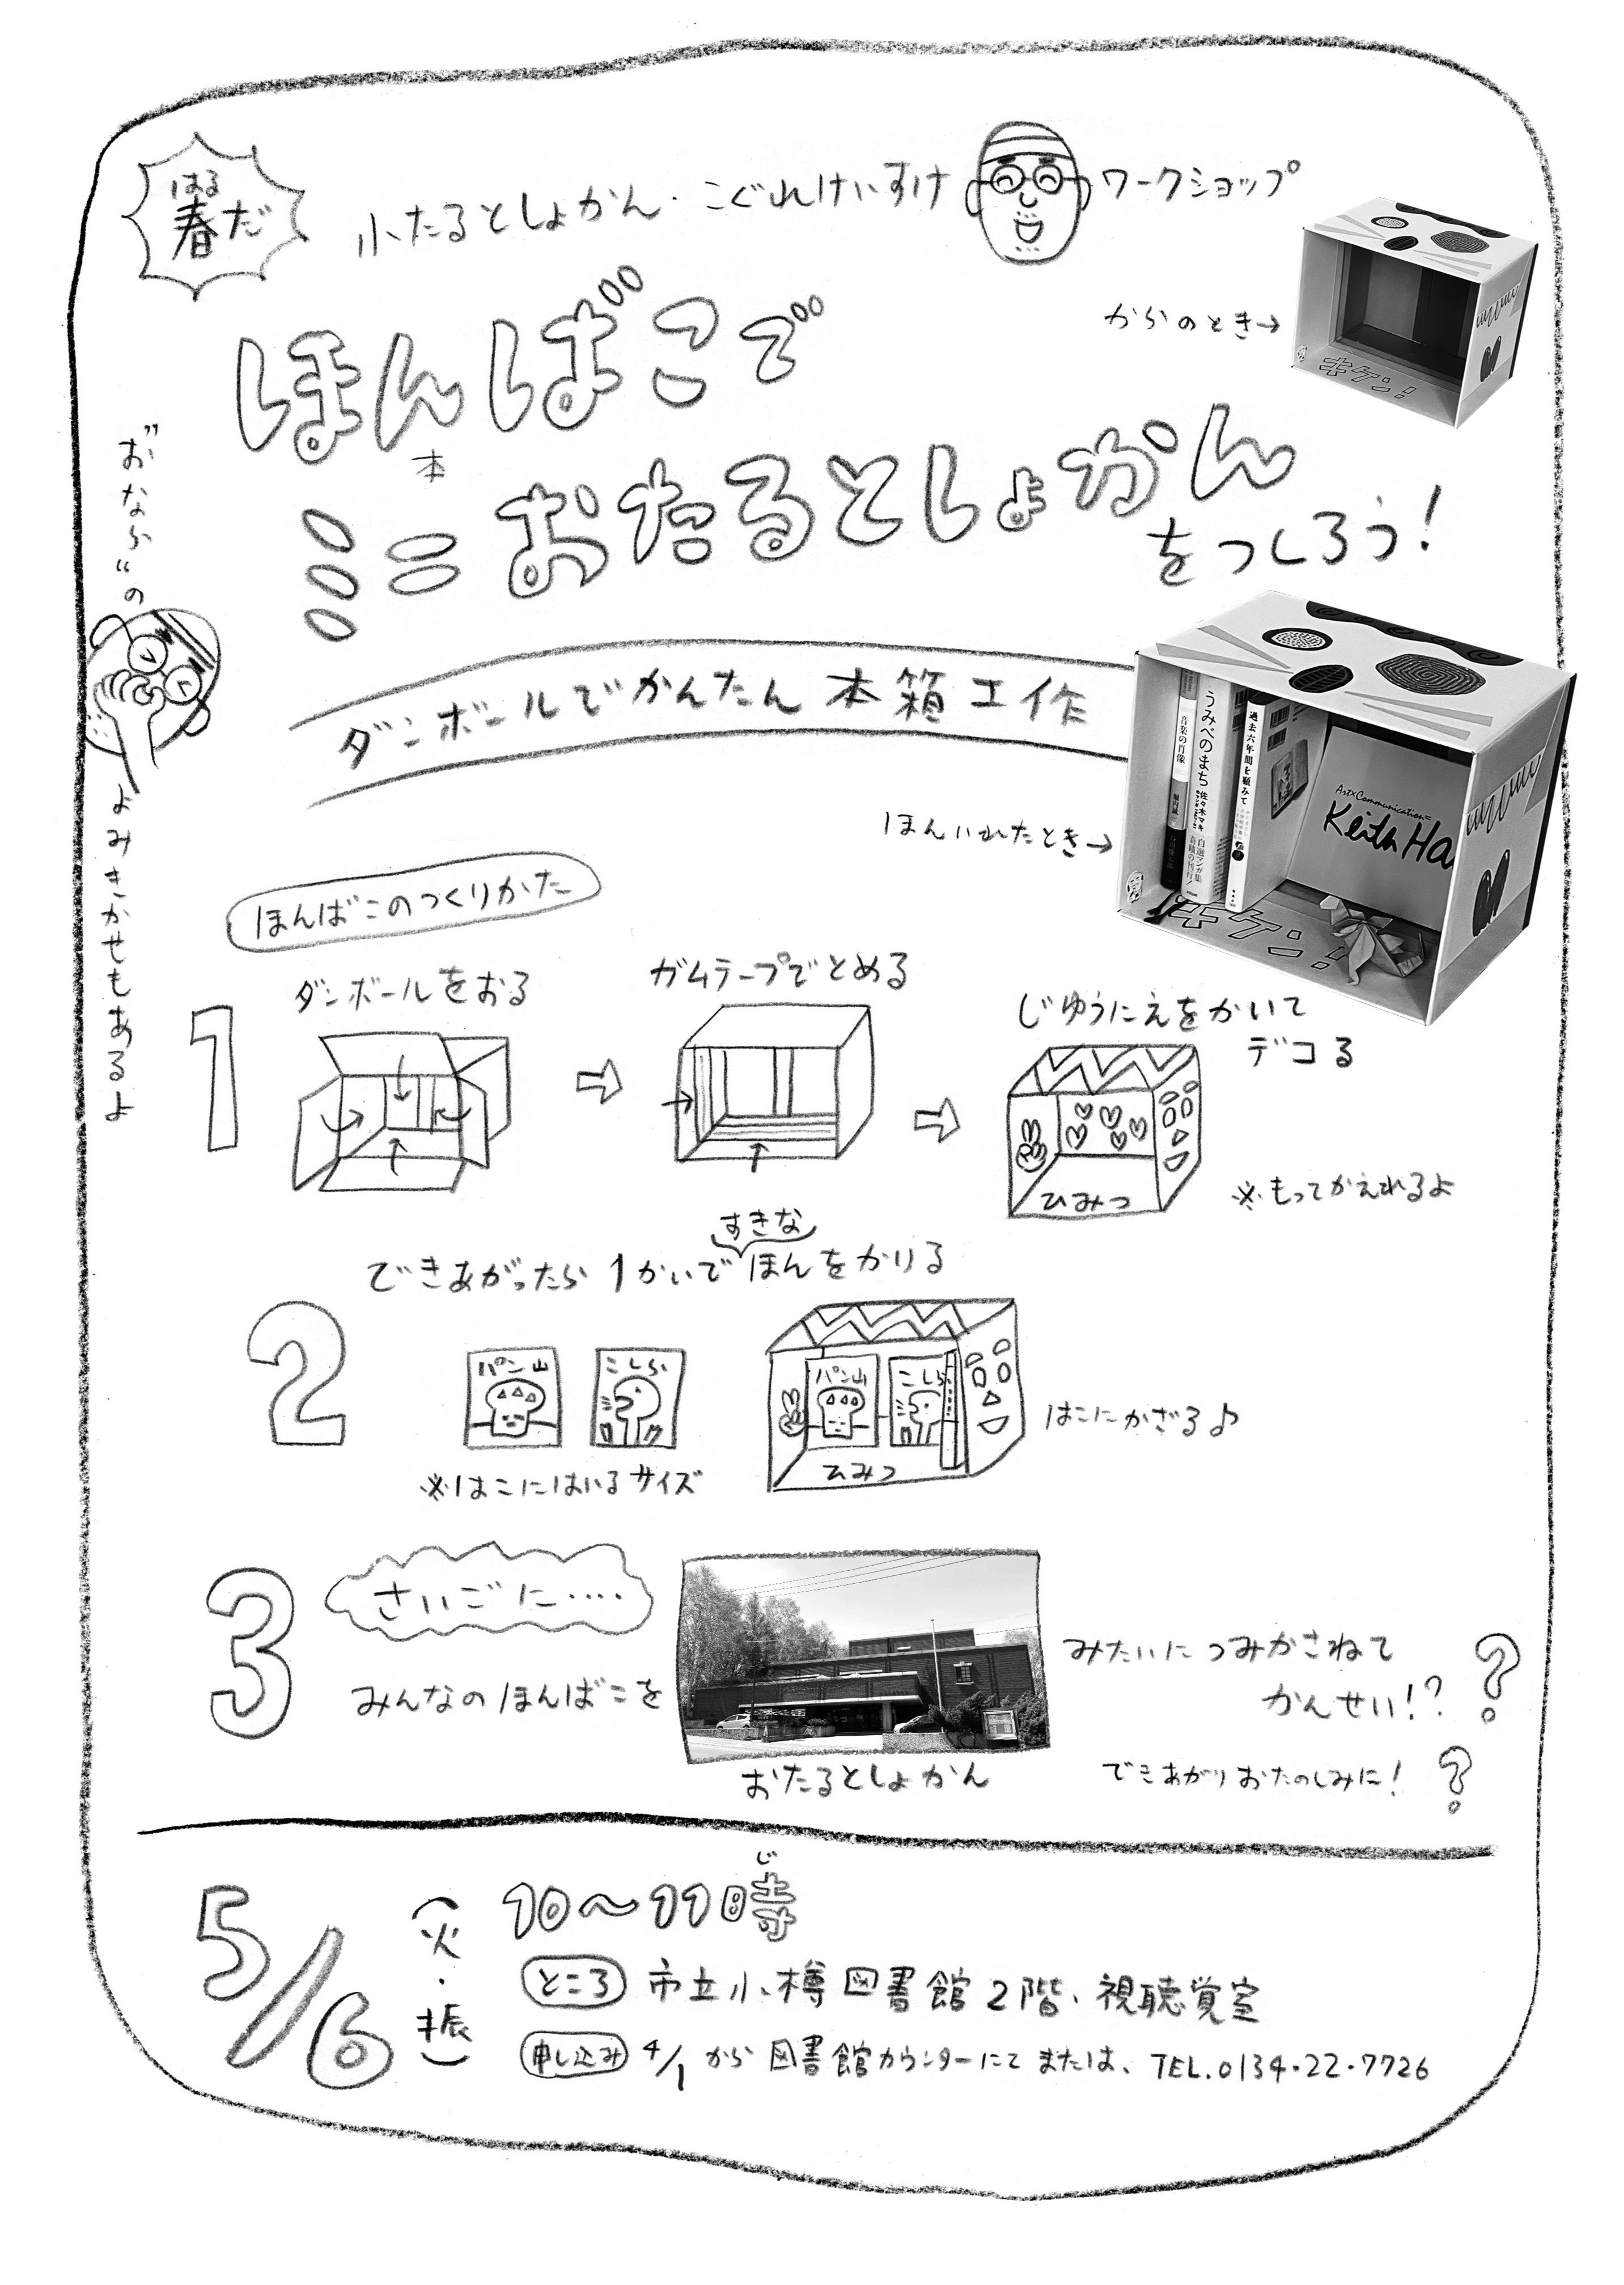 はる
春だ
小たるとしょかん・こぐれけいすけ ワークショップ
ほんばこで
本
ミニおたるとしょかん
をつくろう！
からのとき→
キケン！
ダンボールでかんたん本箱工作
ほんいれたとき→
音楽の肖像
うみべのまち 佐々木マキ 自選マンガ集
過去六年間を顧みて
Art×Communication=
Keith Ha
キケン！
"おなら"の
よみきかせもあるよ
ほんばこのつくりかた
1
ダンボールをおる
ガムテープでとめる
じゆうにえをかいて
デコる
ひみつ
※もってかえれるよ
2
すきな
できあがったら1かいでほんをかりる
パン山
こしら
※はこにはいるサイズ
パン山
こしら
ひみつ
はこにかざる♪
3
さいごに‥‥
みんなのほんばこを
おたるとしょかん
みたいにつみかさねて
かんせい！？
できあがりおたのしみに！
5/6
（火・振）
じ
10〜11時
ところ 市立小樽図書館2階・視聴覚室
申し込み 4/1から図書館カウンターにてまたは、TEL.0134・22・7726